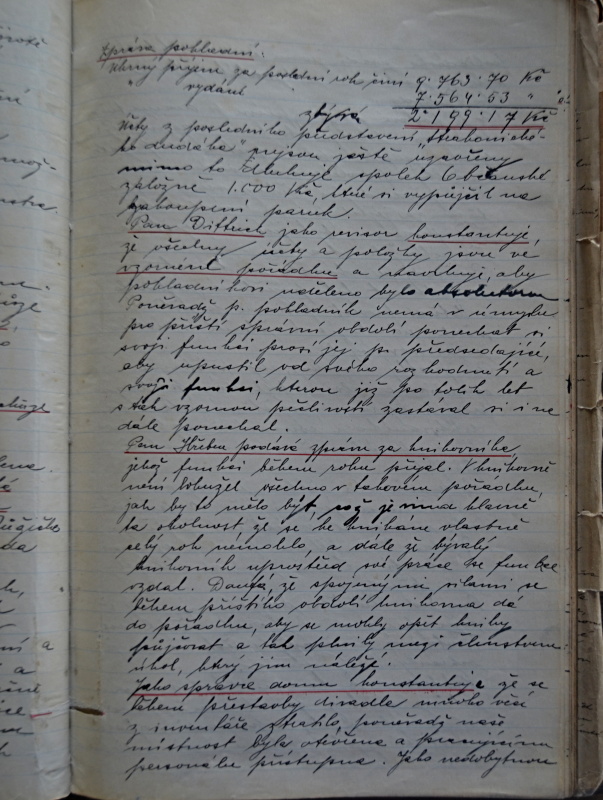 Zpráva pokladní.
Úhrnný příjem za poslední rok činí 9.763.70 Kč
" vydání 7.564.53 "
zbývá 2.199.17 Kč
Účty z posledního představení „Strakonického
dudáka" nejsou ještě uzavřeny
mimo to dluhuje spolek Občanské
záložně 1.000 Kč, které si vypůjčil na
zakoupení paruk.
Pan Dittrich jako revisor konstantuje,
že všechny účty a položky jsou ve
vzorném pořádku a navrhuje, aby
pokladníkovi uděleno bylo absolutorium
Poněvadž p. pokladník nemá v úmyslu
pro příští správní období ponechat si
svoji funkci prosí jej p. předsedající,
aby upustil od svého rozhodnutí a
svoji funkci, kterou již po tolik let
s tak vzornou pečlivostí zastával si i na
dále ponechal.
Pan Hřeben podává zprávu za knihovníka,
jehož funkci během roku přijal. V knihovně
není bohužel všechno v takovém pořádku,
jak by to mělo být, což je vina hlavně
ta okolnost že se ke knihám vlastně
celý rok nemohlo a dále že bývalý
knihovník uprostřed své práce se funkce
vzdal. Doufá, že spojenými silami se
během příštího období knihovna dá
do pořádku, aby se mohly opět knihy
půjčovat a tak plnily mezi členstvem
úkol, který jim náleží.
Jako správce domu konstantuje že se
během přestavby divadla mnoho věcí
z inventáře ztratilo, poněvadž naše
místnost byla otevřena a pracujícímu
personálu přístupna. Jako nedobytnou